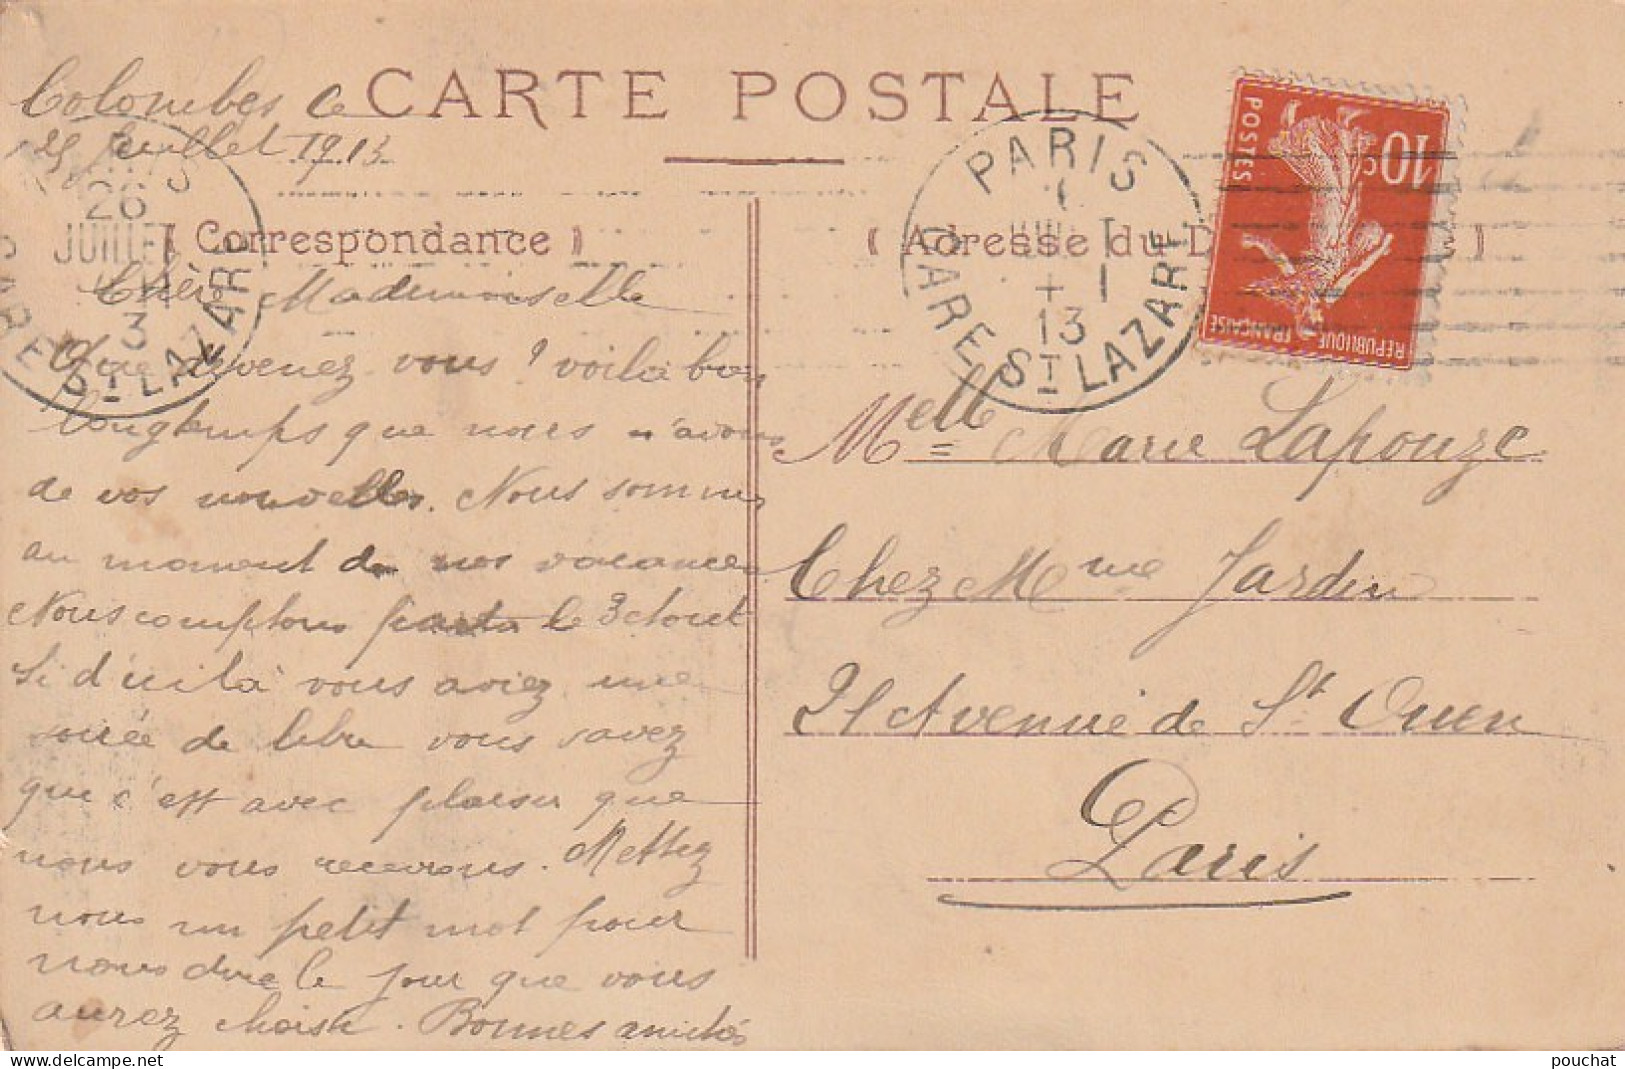 CARTE POSTALE
Colombes ce
25 Juillet 1913
( Correspondance )
Chère Mademoiselle
Que devenez vous ? voilà bon
longtemps que nous n'avons
de vos nouvelles. Nous sommes
au moment de nos vacances
Nous comptons partir le 3 Aout
Si d'ici là vous aviez une
soirée de libre vous savez
que c'est avec plaisir que
nous vous recevrons. Mettez
nous un petit mot pour
nous dire le jour que vous
aurez choisi. Bonnes amitiés
( Adresse du D
Melle Marie Lapouze
Chez Mme Jardin
21 Avenue de St Ouen
Paris
PARIS
13
GARE ST LAZARE
26
JUILLET
13
GARE ST LAZARE
POSTES
10c
REPUBLIQUE FRANÇAISE
pouchat